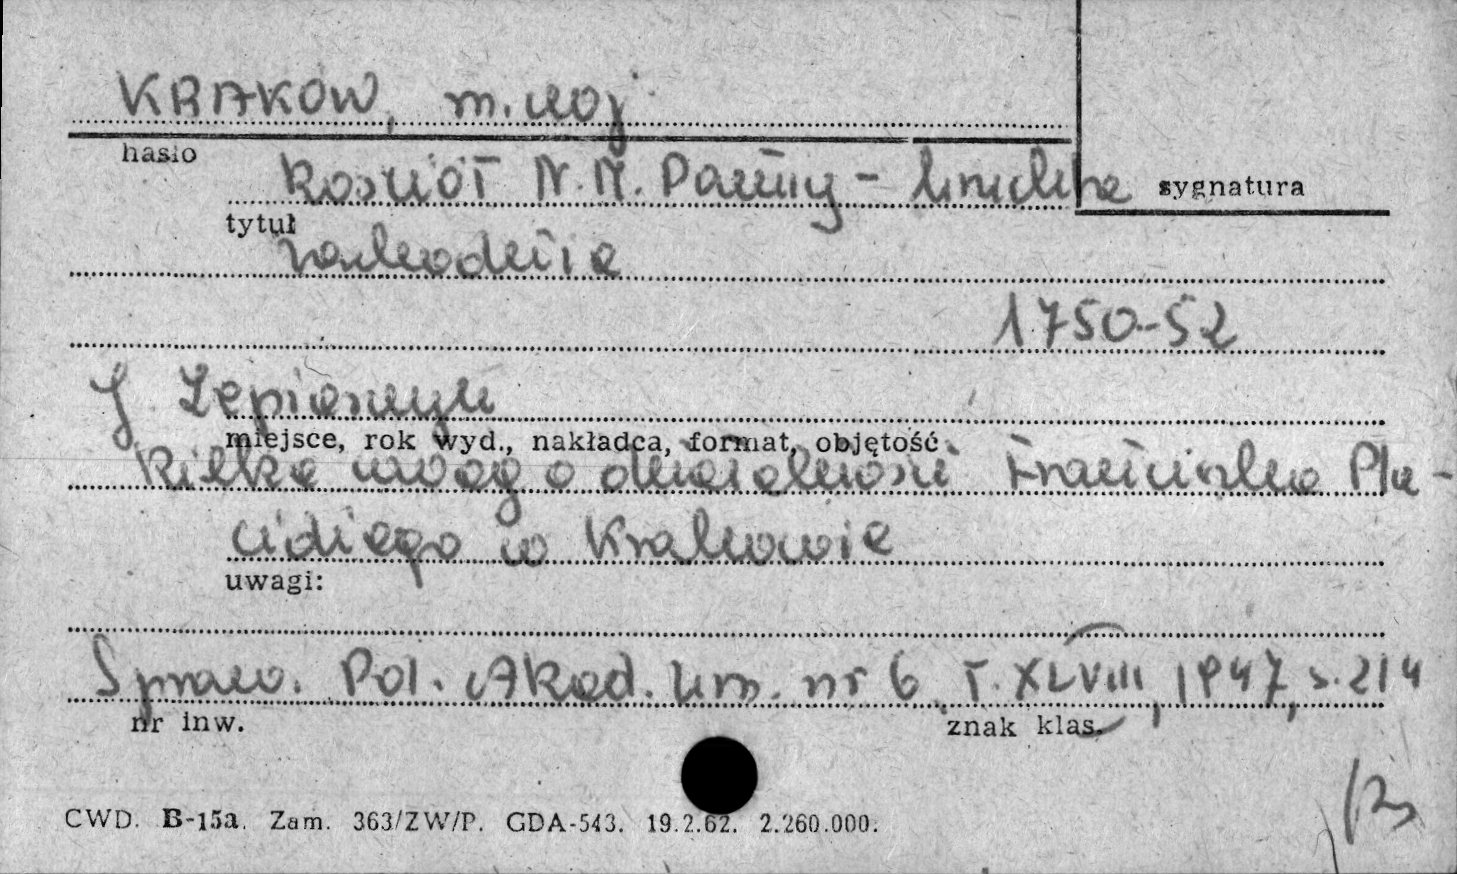 KRAKÓW, m. woj.
hasło
Kościół N.M. Panny - kruchta
sygnatura
tytuł
zachodnia
1750-52
J. Lepiarczyk
miejsce, rok wyd., nakładca, format, objętość
Kilka uwag o działalności Franciszka Pla-
cidiego w Krakowie
uwagi:
Spraw. Pol. Akad. Um. nr 6, T. XLVIII, 1947, s. 214
nr inw.
znak klas.
CWD. B-15a. Zam. 363/ZW/P. GDA-543. 19.2.62. 2.260.000.